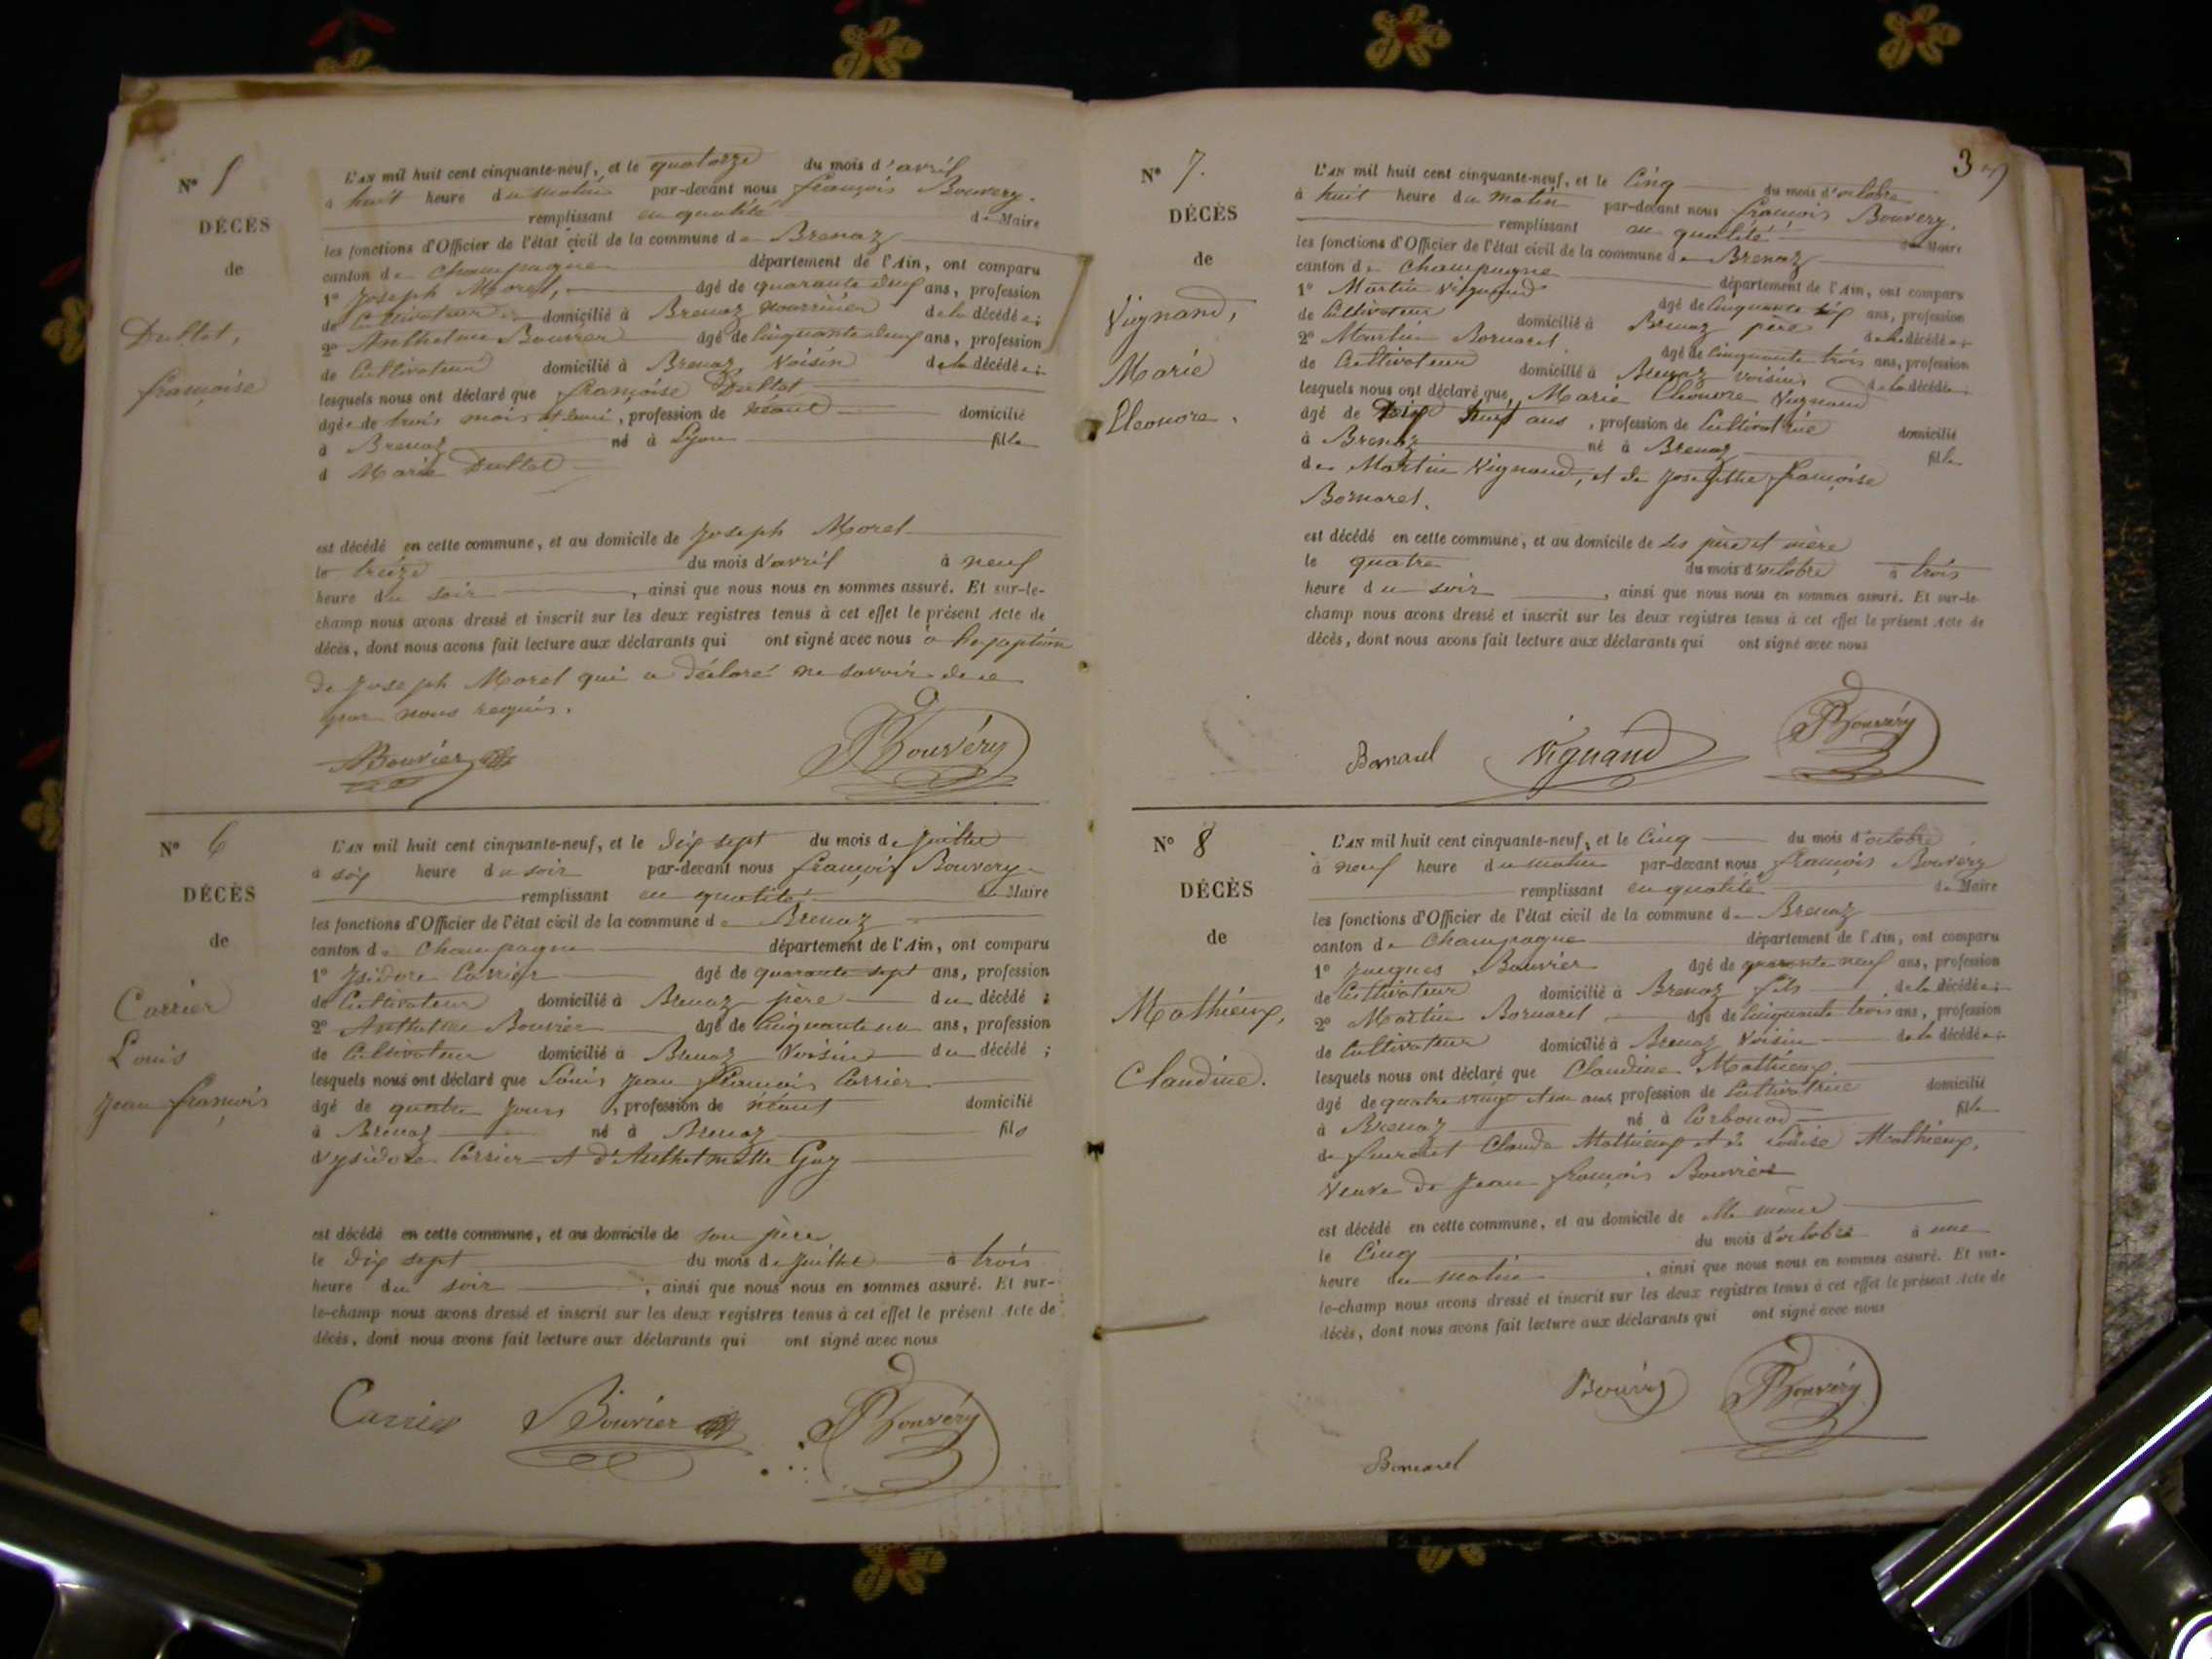 N° 5
DÉCÈS
de
Dullot,
françoise
L'AN mil huit cent cinquante-neuf, et le quatorze du mois d'avril
à huit heure du matin par-devant nous françois Bouvery.
remplissant en qualité de Maire
les fonctions d'Officier de l'état civil de la commune de Brenaz
canton de Champagne département de l'Ain, ont comparu
1° Joseph Morel, âgé de quarante deux ans, profession
de Cultivateur domicilié à Brenaz nourricier de la décédée;
2° Anthelme Bouvier âgé de cinquante deux ans, profession
de Cultivateur domicilié à Brenaz Voisin de la décédée;
lesquels nous ont déclaré que françoise Dullot
âgée de trois mois et demi, profession de néant domicilié
à Brenaz né à Lyon fille
d Marie Dullot
est décédé en cette commune, et au domicile de Joseph Morel
le treize du mois d'avril à neuf
heure du soir, ainsi que nous nous en sommes assuré. Et sur-le-
champ nous avons dressé et inscrit sur les deux registres tenus à cet effet le présent Acte de
décès, dont nous avons fait lecture aux déclarants qui ont signé avec nous à l'exception
de Joseph Morel qui a déclaré ne savoir de ce
par nous requis.
Bouvier Bouvéry
N° 6
DÉCÈS
de
Carrier
Louis
Jean françois
L'AN mil huit cent cinquante-neuf, et le dix sept du mois de Juillet
à six heure du soir par-devant nous françois Bouvery
remplissant en qualité de Maire
les fonctions d'Officier de l'état civil de la commune de Brenaz
canton de Champagne département de l'Ain, ont comparu
1° Ysidore Carrier âgé de quarante sept ans, profession
de Cultivateur domicilié à Brenaz père du décédé;
2° Anthelme Bouvier âgé de cinquante un ans, profession
de Cultivateur domicilié à Brenaz Voisin du décédé;
lesquels nous ont déclaré que Louis Jean françois Carrier
âgé de quatre jours, profession de néant domicilié
à Brenaz né à Brenaz fils
d'ysidore Carrier et d'Anthelmette Guy
est décédé en cette commune, et au domicile de son père
le dix sept du mois de Juillet à trois
heure du soir, ainsi que nous nous en sommes assuré. Et sur-
le-champ nous avons dressé et inscrit sur les deux registres tenus à cet effet le présent Acte de
décès, dont nous avons fait lecture aux déclarants qui ont signé avec nous
Carrier Bouvier Bouvéry
3
N° 7.
DÉCÈS
de
Vignand,
Marie
Eleonore.
L'AN mil huit cent cinquante-neuf, et le Cinq du mois d'octobre
à huit heure du matin par-devant nous françois Bouvery,
remplissant en qualité de Maire
les fonctions d'Officier de l'état civil de la commune de Brenaz
canton de Champagne département de l'Ain, ont comparu
1° Martin Vignand âgé de cinquante six ans, profession
de Cultivateur domicilié à Brenaz père de la décédée;
2° Martin Bornarel âgé de cinquante trois ans, profession
de Cultivateur domicilié à Brenaz voisin de la décédée
lesquels nous ont déclaré que Marie Eléonore Vignand
âgé de huit ans, profession de Cultivatrice domicilié
à Brenaz né à Brenaz fille
de Martin Vignand, et de Josephte françoise
Bornarel.
est décédé en cette commune, et au domicile de ses père et mère
le quatre du mois d'octobre à trois
heure du soir, ainsi que nous nous en sommes assuré. Et sur-le-
champ nous avons dressé et inscrit sur les deux registres tenus à cet effet le présent Acte de
décès, dont nous avons fait lecture aux déclarants qui ont signé avec nous
Bornarel Vignand Bouvéry
N° 8
DÉCÈS
de
Mathieux,
Claudine.
L'AN mil huit cent cinquante-neuf, et le Cinq du mois d'octobre
à neuf heure du matin par-devant nous françois Bouvery
remplissant en qualité de Maire
les fonctions d'Officier de l'état civil de la commune de Brenaz
canton de Champagne département de l'Ain, ont comparu
1° Bouvier âgé de quarante neuf ans, profession
de Cultivateur domicilié à Brenaz fils de la décédée;
2° Martin Bornarel âgé de cinquante trois ans, profession
de Cultivateur domicilié à Brenaz Voisin de la décédée;
lesquels nous ont déclaré que Claudine Mathieux.
âgé de quatre vingt ans profession de Cultivatrice domicilié
à Brenaz né à Corbonod fille
de Claude Mathieux et de Louise Mathieux,
Veuve de Jean françois Bouvier
est décédé en cette commune, et au domicile de elle même
le Cinq du mois d'octobre à une
heure du matin, ainsi que nous nous en sommes assuré. Et sur-
le-champ nous avons dressé et inscrit sur les deux registres tenus à cet effet le présent Acte de
décès, dont nous avons fait lecture aux déclarants qui ont signé avec nous
Bouvier Bouvéry
Bornarel